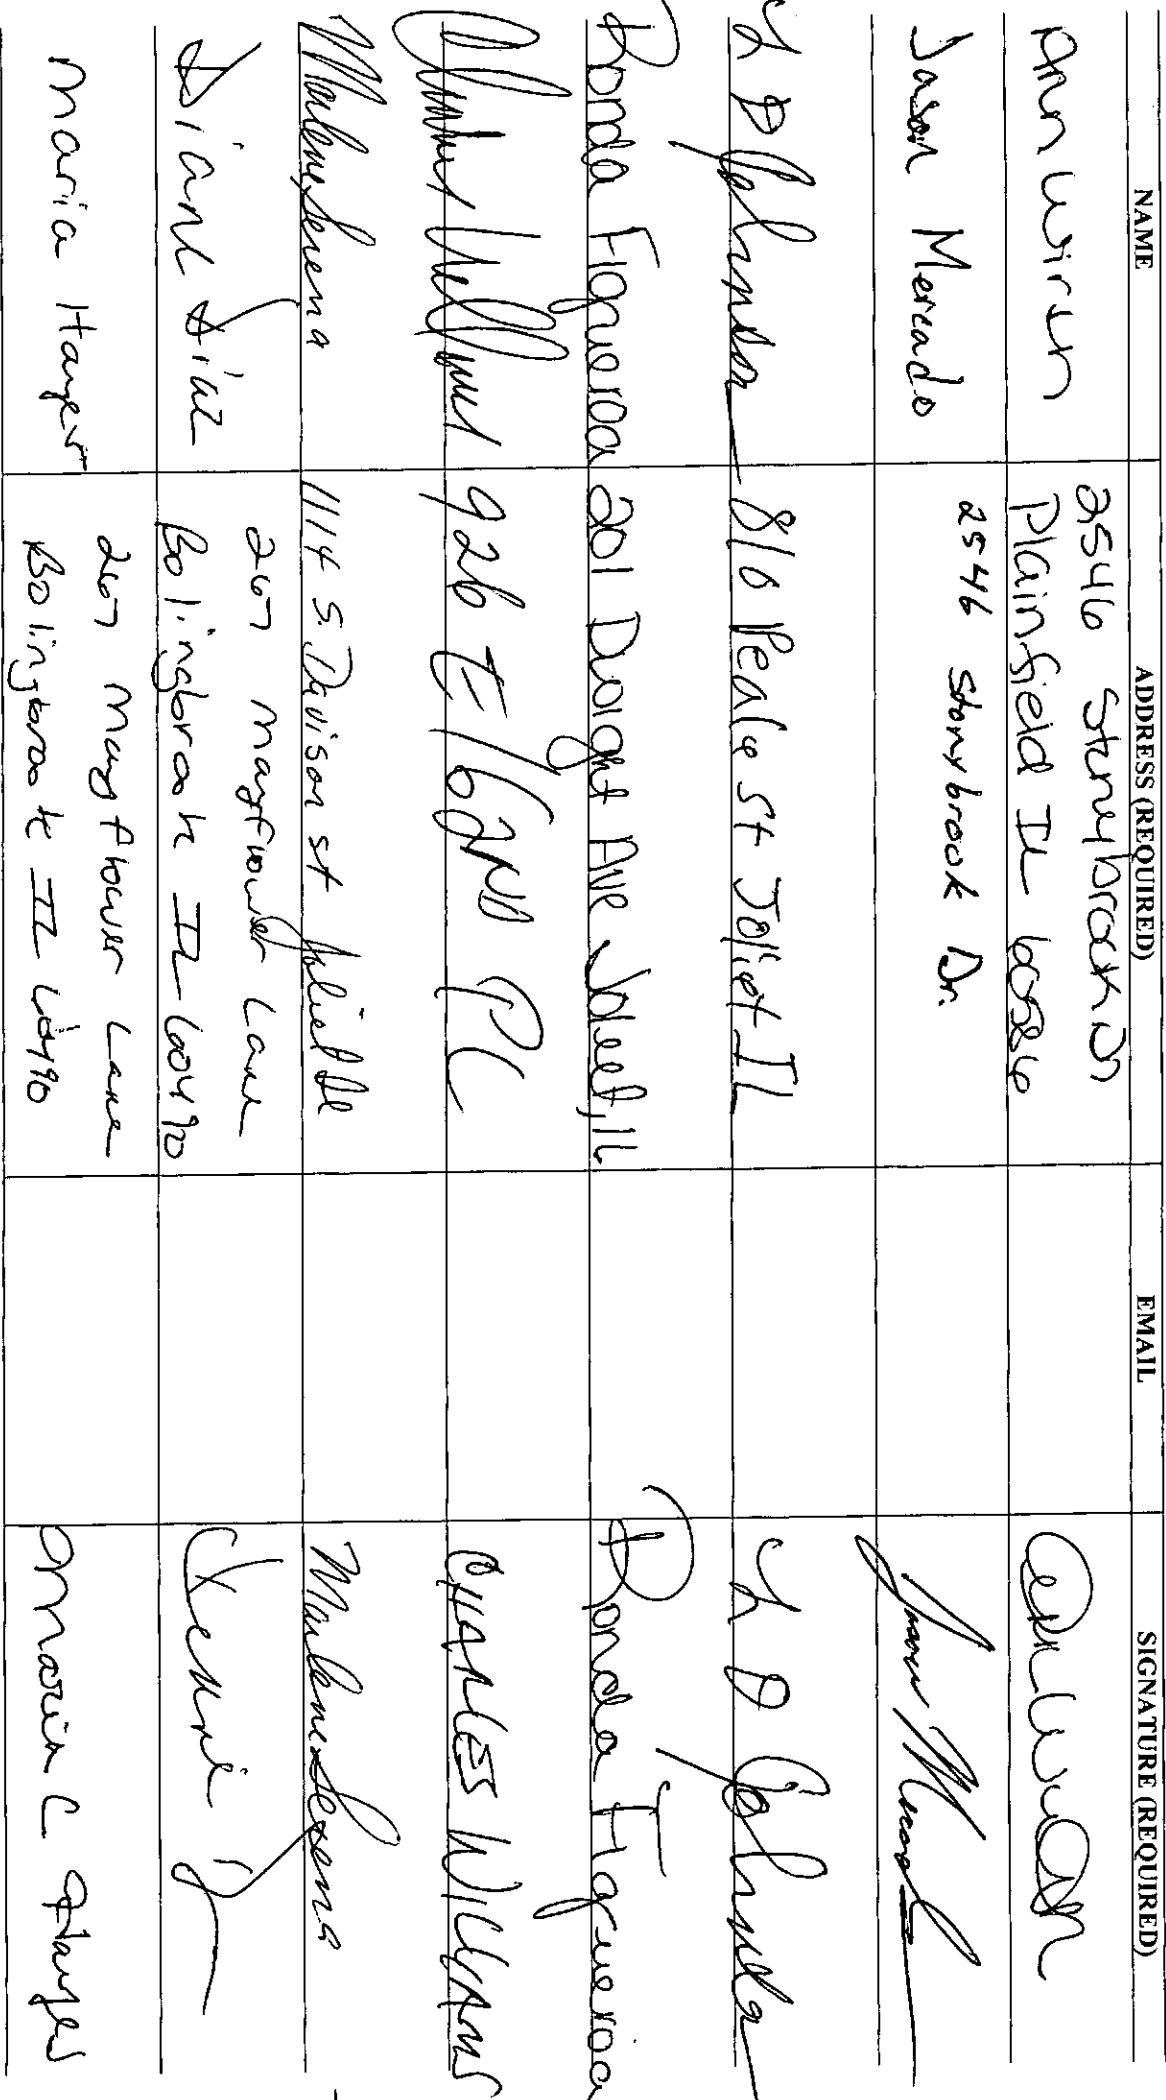 NAME ADDRESS (REQUIRED) EMAIL SIGNATURE (REQUIRED)
Ann Wirth 2546 Stoneybrook Dr
Plainfield IL 60586
Jason Mercado 2546 Stonybrook Dr.
L D Johnson 816 St Joliet IL L D Johnson
Ronda Figueroa 201 Dwight Ave Joliet, IL Ronda Figueroa
926 E 162ND PL CHARLES WILLIAMS
Marlene Serena 1114 S. Davison st Marlene Serena
Diane Diaz 267 Mayflower Lane
Bolingbrook IL 60490
Maria 267 Mayflower Lane
Bolingbrook IL 60490
Maria C